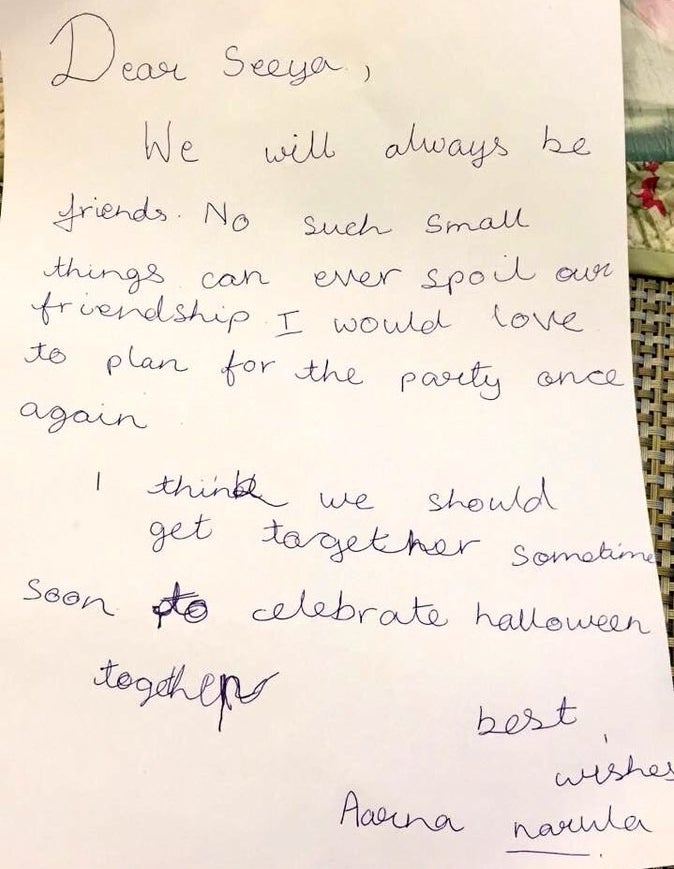 Dear Seeya,
We will always be
friends. No such small
things can ever spoil our
friendship. I would love
to plan for the party once
again
I think we should
get targether sometime
soon to celebrate halloween
together
best
wishes
Aarna narula